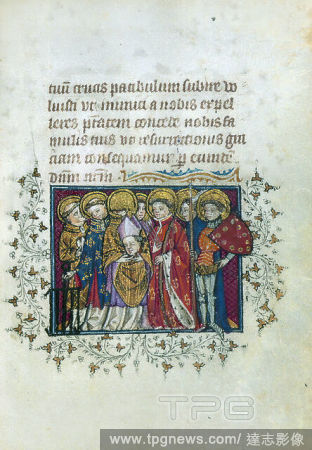 tuū crucis patibulum subire vo
luisti vt inimici a nobis expel
leres ptātem concede nobis fa
mulis tuis vt resurrectionis gra
ciam consequamur p eundē
dnm nrm
TPG
www.tpgnews.com/達志影像